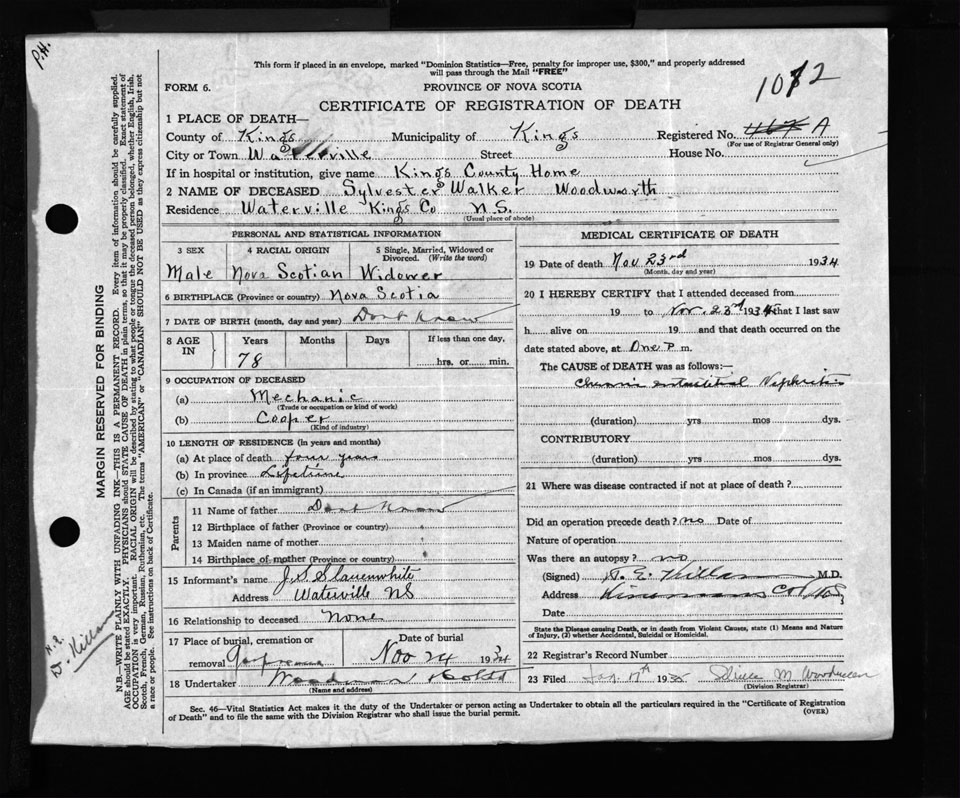 P.H.
This form if placed in an envelope, marked "Dominion Statistics—Free, penalty for improper use, $300," and properly addressed
will pass through the Mail "FREE"
FORM 6.
PROVINCE OF NOVA SCOTIA
1012
CERTIFICATE OF REGISTRATION OF DEATH
1 PLACE OF DEATH—
County of Kings Municipality of Kings Registered No. A
(For use of Registrar General only)
City or Town Waterville Street House No.
If in hospital or institution, give name Kings County Home
2 NAME OF DECEASED Sylvester Walker Woodworth
Residence Waterville Kings Co N.S.
(Usual place of abode)
PERSONAL AND STATISTICAL INFORMATION
3 SEX 4 RACIAL ORIGIN 5 Single, Married, Widowed or
Divorced. (Write the word)
Male Nova Scotian Widower
6 BIRTHPLACE (Province or country) Nova Scotia
7 DATE OF BIRTH (month, day and year) Dont Know
8 AGE IN Years Months Days If less than one day,
78 hrs. or min.
9 OCCUPATION OF DECEASED
(a) Mechanic
(Trade or occupation or kind of work)
(b) Cooper
(Kind of industry)
10 LENGTH OF RESIDENCE (in years and months)
(a) At place of death four years
(b) In province Lifetime
(c) In Canada (if an immigrant)
Parents
11 Name of father Dont Know
12 Birthplace of father (Province or country)
13 Maiden name of mother
14 Birthplace of mother (Province or country)
15 Informant's name J.S. Slauenwhite
Address Waterville NS
16 Relationship to deceased None
17 Place of burial, cremation or Date of burial
removal Nov 24 1934
18 Undertaker Woodman
(Name and address)
MEDICAL CERTIFICATE OF DEATH
19 Date of death Nov 23rd 1934
(Month, day and year)
20 I HEREBY CERTIFY that I attended deceased from
19 to Nov. 23rd 1934 that I last saw
h alive on 19 and that death occurred on the
date stated above, at One P. m.
The CAUSE of DEATH was as follows:—
Chronic interstitial Nephritis
(duration) yrs mos dys.
CONTRIBUTORY
(duration) yrs. mos. dys.
21 Where was disease contracted if not at place of death?
Did an operation precede death? no Date of
Nature of operation
Was there an autopsy? no
(Signed) Killam M.D.
Address Kinsmans
Date
State the Disease causing Death, or in death from Violent Causes, state (1) Means and Nature
of Injury, (2) whether Accidental, Suicidal or Homicidal.
22 Registrar's Record Number
23 Filed Jan 17th 1935 M
(Division Registrar)
Sec. 46—Vital Statistics Act makes it the duty of the Undertaker or person acting as Undertaker to obtain all the particulars required in the "Certificate of Registration
of Death" and to file the same with the Division Registrar who shall issue the burial permit. (OVER)
MARGIN RESERVED FOR BINDING
N.B.—WRITE PLAINLY WITH UNFADING INK—THIS IS A PERMANENT RECORD. Every item of information should be carefully supplied.
AGE should be stated EXACTLY. PHYSICIANS should STATE CAUSE OF DEATH in plain terms, so that it may be properly classified. Exact statement of
OCCUPATION is very important. RACIAL ORIGIN will be described by stating to what people or tongue the deceased person belonged, whether English, Irish,
Scotch, French, German, Russian, Ruthenian, etc. The terms "AMERICAN" or "CANADIAN" SHOULD NOT BE USED as they express citizenship but not
a race or people. See instructions on back of Certificate.
Killam